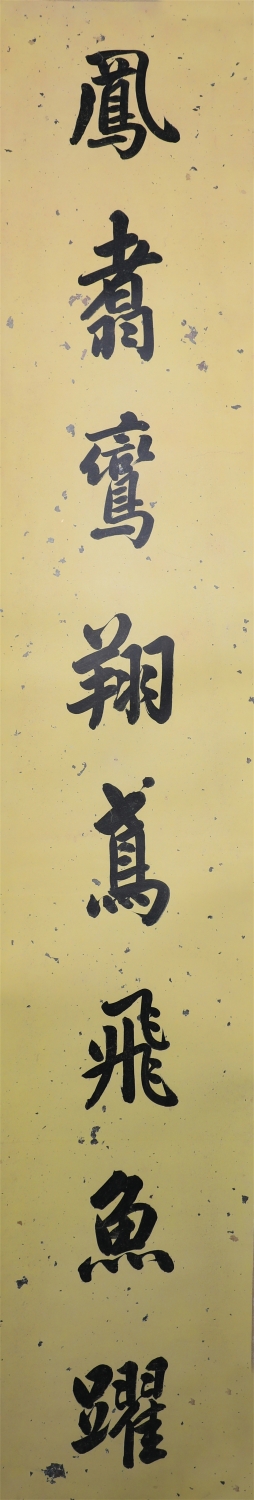 鳳翥鸞翔鳶飛魚躍